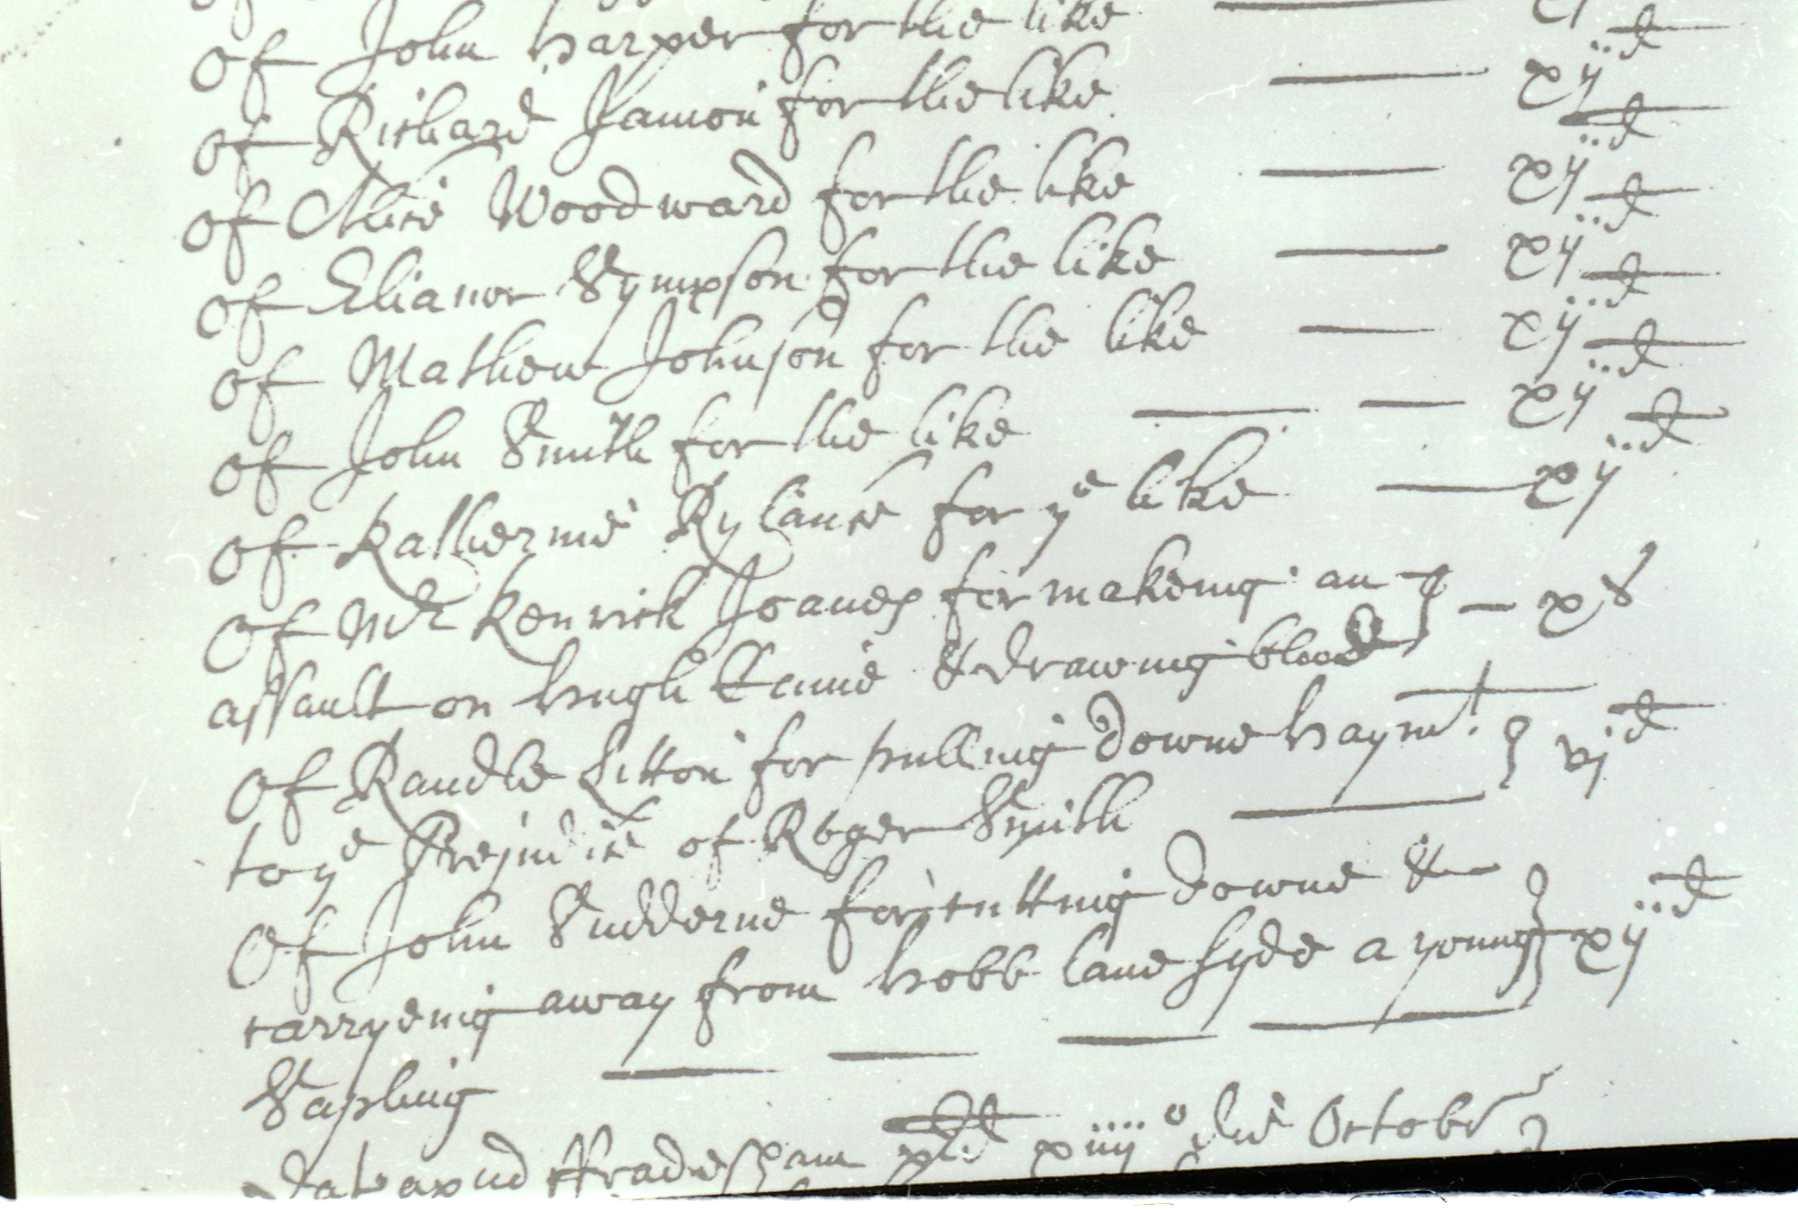 Of John Harper for the like
Of Richard Jamon for the like xij d
Of Alice Woodward for the like xij d
Of Elianor Sympson for the like xij d
Of Mathew Johnson for the like xij d
Of John Smith for the like xij d
Of Katherine Rylance for ye like xij d
Of Mr Kenrick Joanes for makeing an
assault on Hugh & drawing blood xs
Of Randle Litton for pulling downe haymt
to ye Prejudice of Roger Smith vj d
Of John Sudderne for cutting downe &
carryeing away from Hobb lane syde a young xij d
Sapling
Dat apud ffradesham xiiij o die Octobr